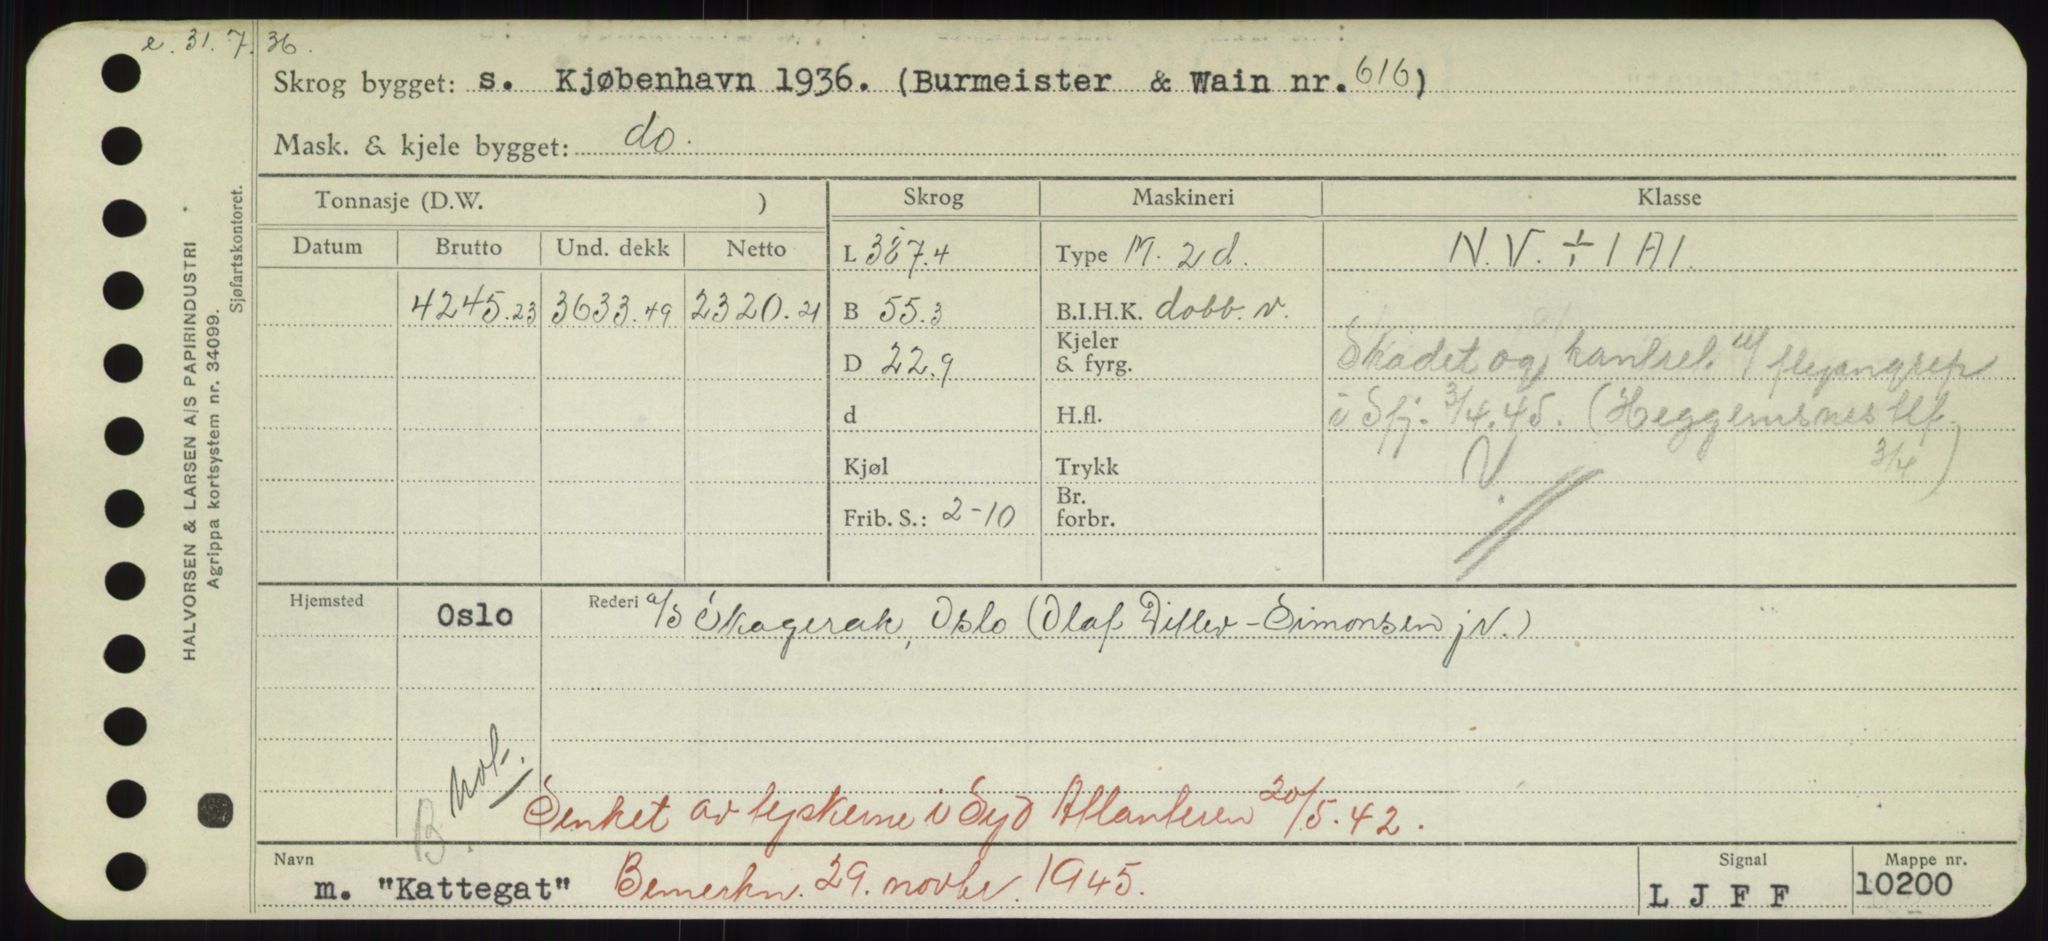 e. 31.7.36.
Skrog bygget: s. Kjøbenhavn 1936. (Burmeister & Wain nr. 616)
Mask. & kjele bygget: do.
Tonnasje (D.W. ) Skrog Maskineri Klasse
Datum Brutto Und. dekk Netto L 387.4 Type M. 2 d. N.V. ÷ 1 A 1.
4245.23 3633.49 2320.21 B 55.3 B.I.H.K. dobb. v.
D 22.9 Kjeler & fyrg. Skadet og kantret v/ flyangrep
d H.fl. i Sfj. 3/4.45. (Heggemsnes tlf. 3/4)
Kjøl Trykk V
Frib. S.: 2-10 Br. forbr.
Hjemsted Oslo Rederi a/s Skagerak, Oslo (Olaf Ditlev-Simonsen jr.)
B. not.
Senket av tyskerne i Syd Atlanteren 20/5.42.
Navn m. "Kattegat" Bemerkn. 29. novbr. 1945. Signal L J F F Mappe nr. 10200
HALVORSEN & LARSEN A/S PAPIRINDUSTRI
Agrippa kortsystem nr. 34099.
Sjøfartskontoret.